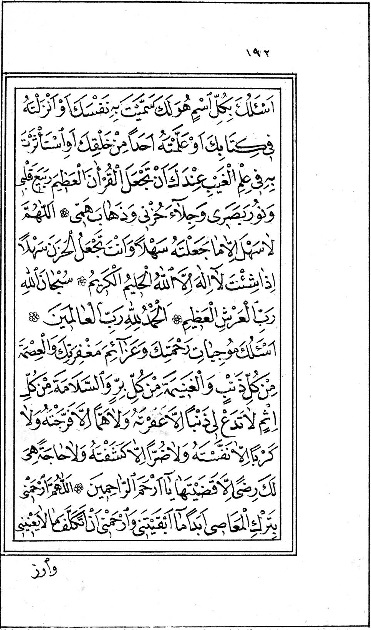 ١٩٢
اَسْئَلُكَ بِكُلِّ اسْمٍ هُوَ لَكَ سَمَّيْتَ بِهِ نَفْسَكَ اَوْ اَنْزَلْتَهُ
فِي كِتَابِكَ اَوْ عَلَّمْتَهُ اَحَدًا مِنْ خَلْقِكَ اَوِ اسْتَأْثَرْتَ
بِهِ فِي عِلْمِ الْغَيْبِ عِنْدَكَ اَنْ تَجْعَلَ الْقُرْاٰنَ الْعَظِيمَ رَبِيعَ قَلْبِي
وَنُورَ بَصَرِي وَجِلَاءَ حُزْنِي وَذَهَابَ هَمِّي ۞ اَللّٰهُمَّ
لَا سَهْلَ اِلَّا مَا جَعَلْتَهُ سَهْلًا وَاَنْتَ تَجْعَلُ الْحَزْنَ سَهْلًا
اِذَا شِئْتَ لَا اِلٰهَ اِلَّا اللّٰهُ الْحَلِيمُ الْكَرِيمُ ۞ سُبْحَانَ اللّٰهِ
رَبِّ الْعَرْشِ الْعَظِيمِ ۞ اَلْحَمْدُ لِلّٰهِ رَبِّ الْعَالَمِينَ ۞
اَسْئَلُكَ مُوجِبَاتِ رَحْمَتِكَ وَعَزَائِمَ مَغْفِرَتِكَ وَالْعِصْمَةَ
مِنْ كُلِّ ذَنْبٍ وَالْغَنِيمَةَ مِنْ كُلِّ بِرٍّ وَالسَّلَامَةَ مِنْ كُلِّ
اِثْمٍ لَا تَدَعْ لِي ذَنْبًا اِلَّا غَفَرْتَهُ وَلَا هَمًّا اِلَّا فَرَّجْتَهُ وَلَا
كَرْبًا اِلَّا نَفَّسْتَهُ وَلَا ضُرًّا اِلَّا كَشَفْتَهُ وَلَا حَاجَةً هِيَ
لَكَ رِضًى اِلَّا قَضَيْتَهَا يَا اَرْحَمَ الرَّاحِمِينَ ۞ اَللّٰهُمَّ ارْحَمْنِي
بِتَرْكِ الْمَعَاصِي اَبَدًا مَا اَبْقَيْتَنِي وَارْحَمْنِي اَنْ اَتَكَلَّفَ مَا لَا يَعْنِينِي
وارز